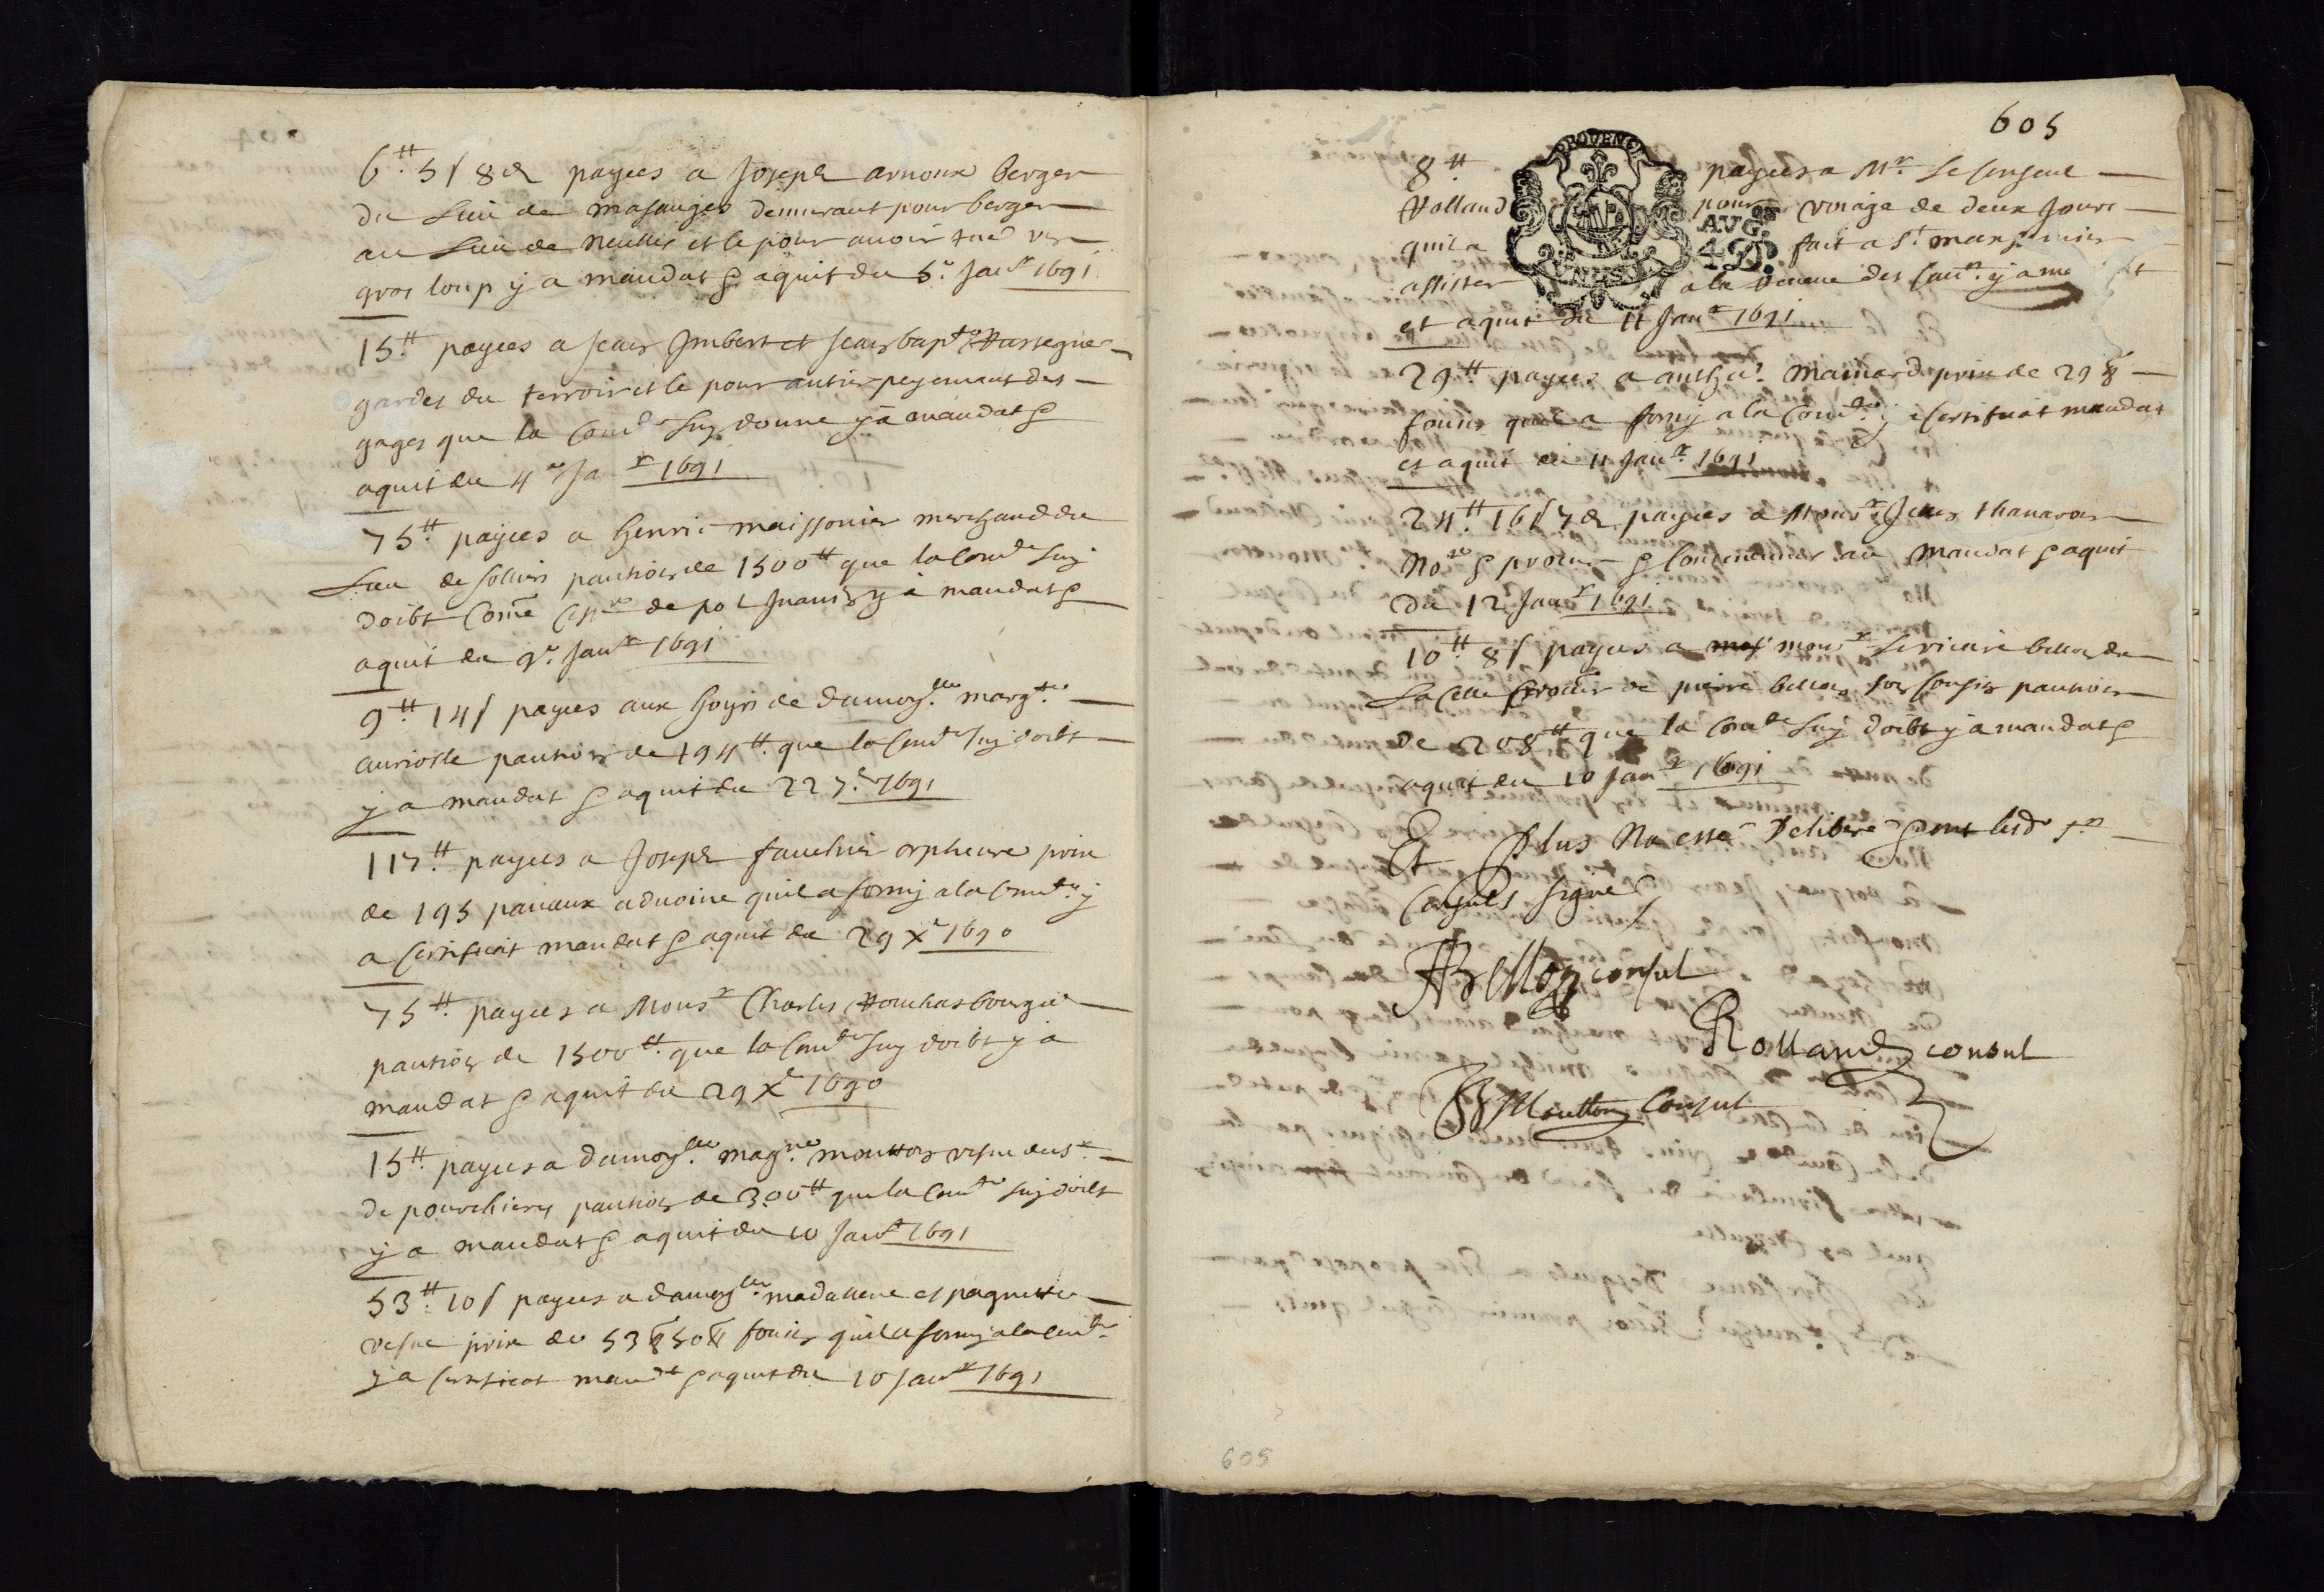 6ᵗᵗ 5ſ 8d payees a Joseph arnoux berger
du Lieu de masauges demurant pour berger
au Lieu de Neulles et le pour auoir tué vn
gros loup y a mandat & aquit du 5ᵉ Janʳ 1691
15ᵗᵗ payees a Jean Imbert et Jean bapᵗᵉ
gardes du terroir et le pour antier peyemant des
gages que la Comᵗᵉ luy donne y a mandat &
aquit du 4ᵉ Janʳ 1691
75ᵗᵗ payees a henric maissonier merchand du
Lieu de sollies pantion de 1500ᵗᵗ que la Comᵗᵉ luy
doibt Come de pol y a mandat &
aquit du 9ᵉ Janʳ 1691
9ᵗᵗ 14ſ payees aux hoyrs de damoyˡˡᵉ margᵗᵉ
auriolle pantion de 194ᵗᵗ que la Comᵗᵉ luy doibt
y a mandat & aquit du 22 1691
117ᵗᵗ payees a Joseph fauchier orpheure prix
de 195 panaux aduoine quil a forny a la Comᵗᵉ y
a Certificat mandat & aquit du 29 Xʳ 1690
75ᵗᵗ payees a Monsʳ Charles bourgeois
pantion de 1500ᵗᵗ que la Comᵗᵉ luy doibt y a
mandat & aquit du 29 Xʳ 1690
15ᵗᵗ payees a damoyˡˡᵉ magⁿᵉ moutton vefue du sʳ
de pourchieres pantion de 300ᵗᵗ que la Comᵗᵉ luy doibt
y a mandat & aquit du 10 Janʳ 1691
53ᵗᵗ 10ſ payees a damoyˡˡᵉ madallene espagnette
vefue prix de 53 50 fouin quil a forny a la Comᵗᵉ
y a Certificat mandᵗ & aquit du 10 Janʳ 1691
605
PROVENCE
8ᵗᵗ payees a Mʳ le Consul
Rolland pour voiage de deux Jours
AVG.
4D.
quil a fait a Sᵗ maxeminin
assister a la venue des y a
et aquit du 11 Janʳ 1691
29ᵗᵗ payees a anthᵉ Mainard prix de 29
fouin quil a forny a la Comᵗᵉ y a Certificat mandat
et aquit du 11 Janʳ 1691
24ᵗᵗ 16ſ 7d payees a Monsʳ Jean thanaron
Noʳᵉ & procur & au mandat & aquit
du 12 Janʳ 1691
10ᵗᵗ 8ſ payees a monsʳ le vicaire bellon de
La Celle de pierre bellon son Cousin pantion
de 208ᵗᵗ que la Comᵗᵉ luy doibt y a mandat &
aquit du 10 Janʳ 1691
Et Plus Na esté Delibéré & ont lesdᵗˢ sʳˢ
Consuls signés
Bellon consul
Rolland consul
Moutton Consul
605